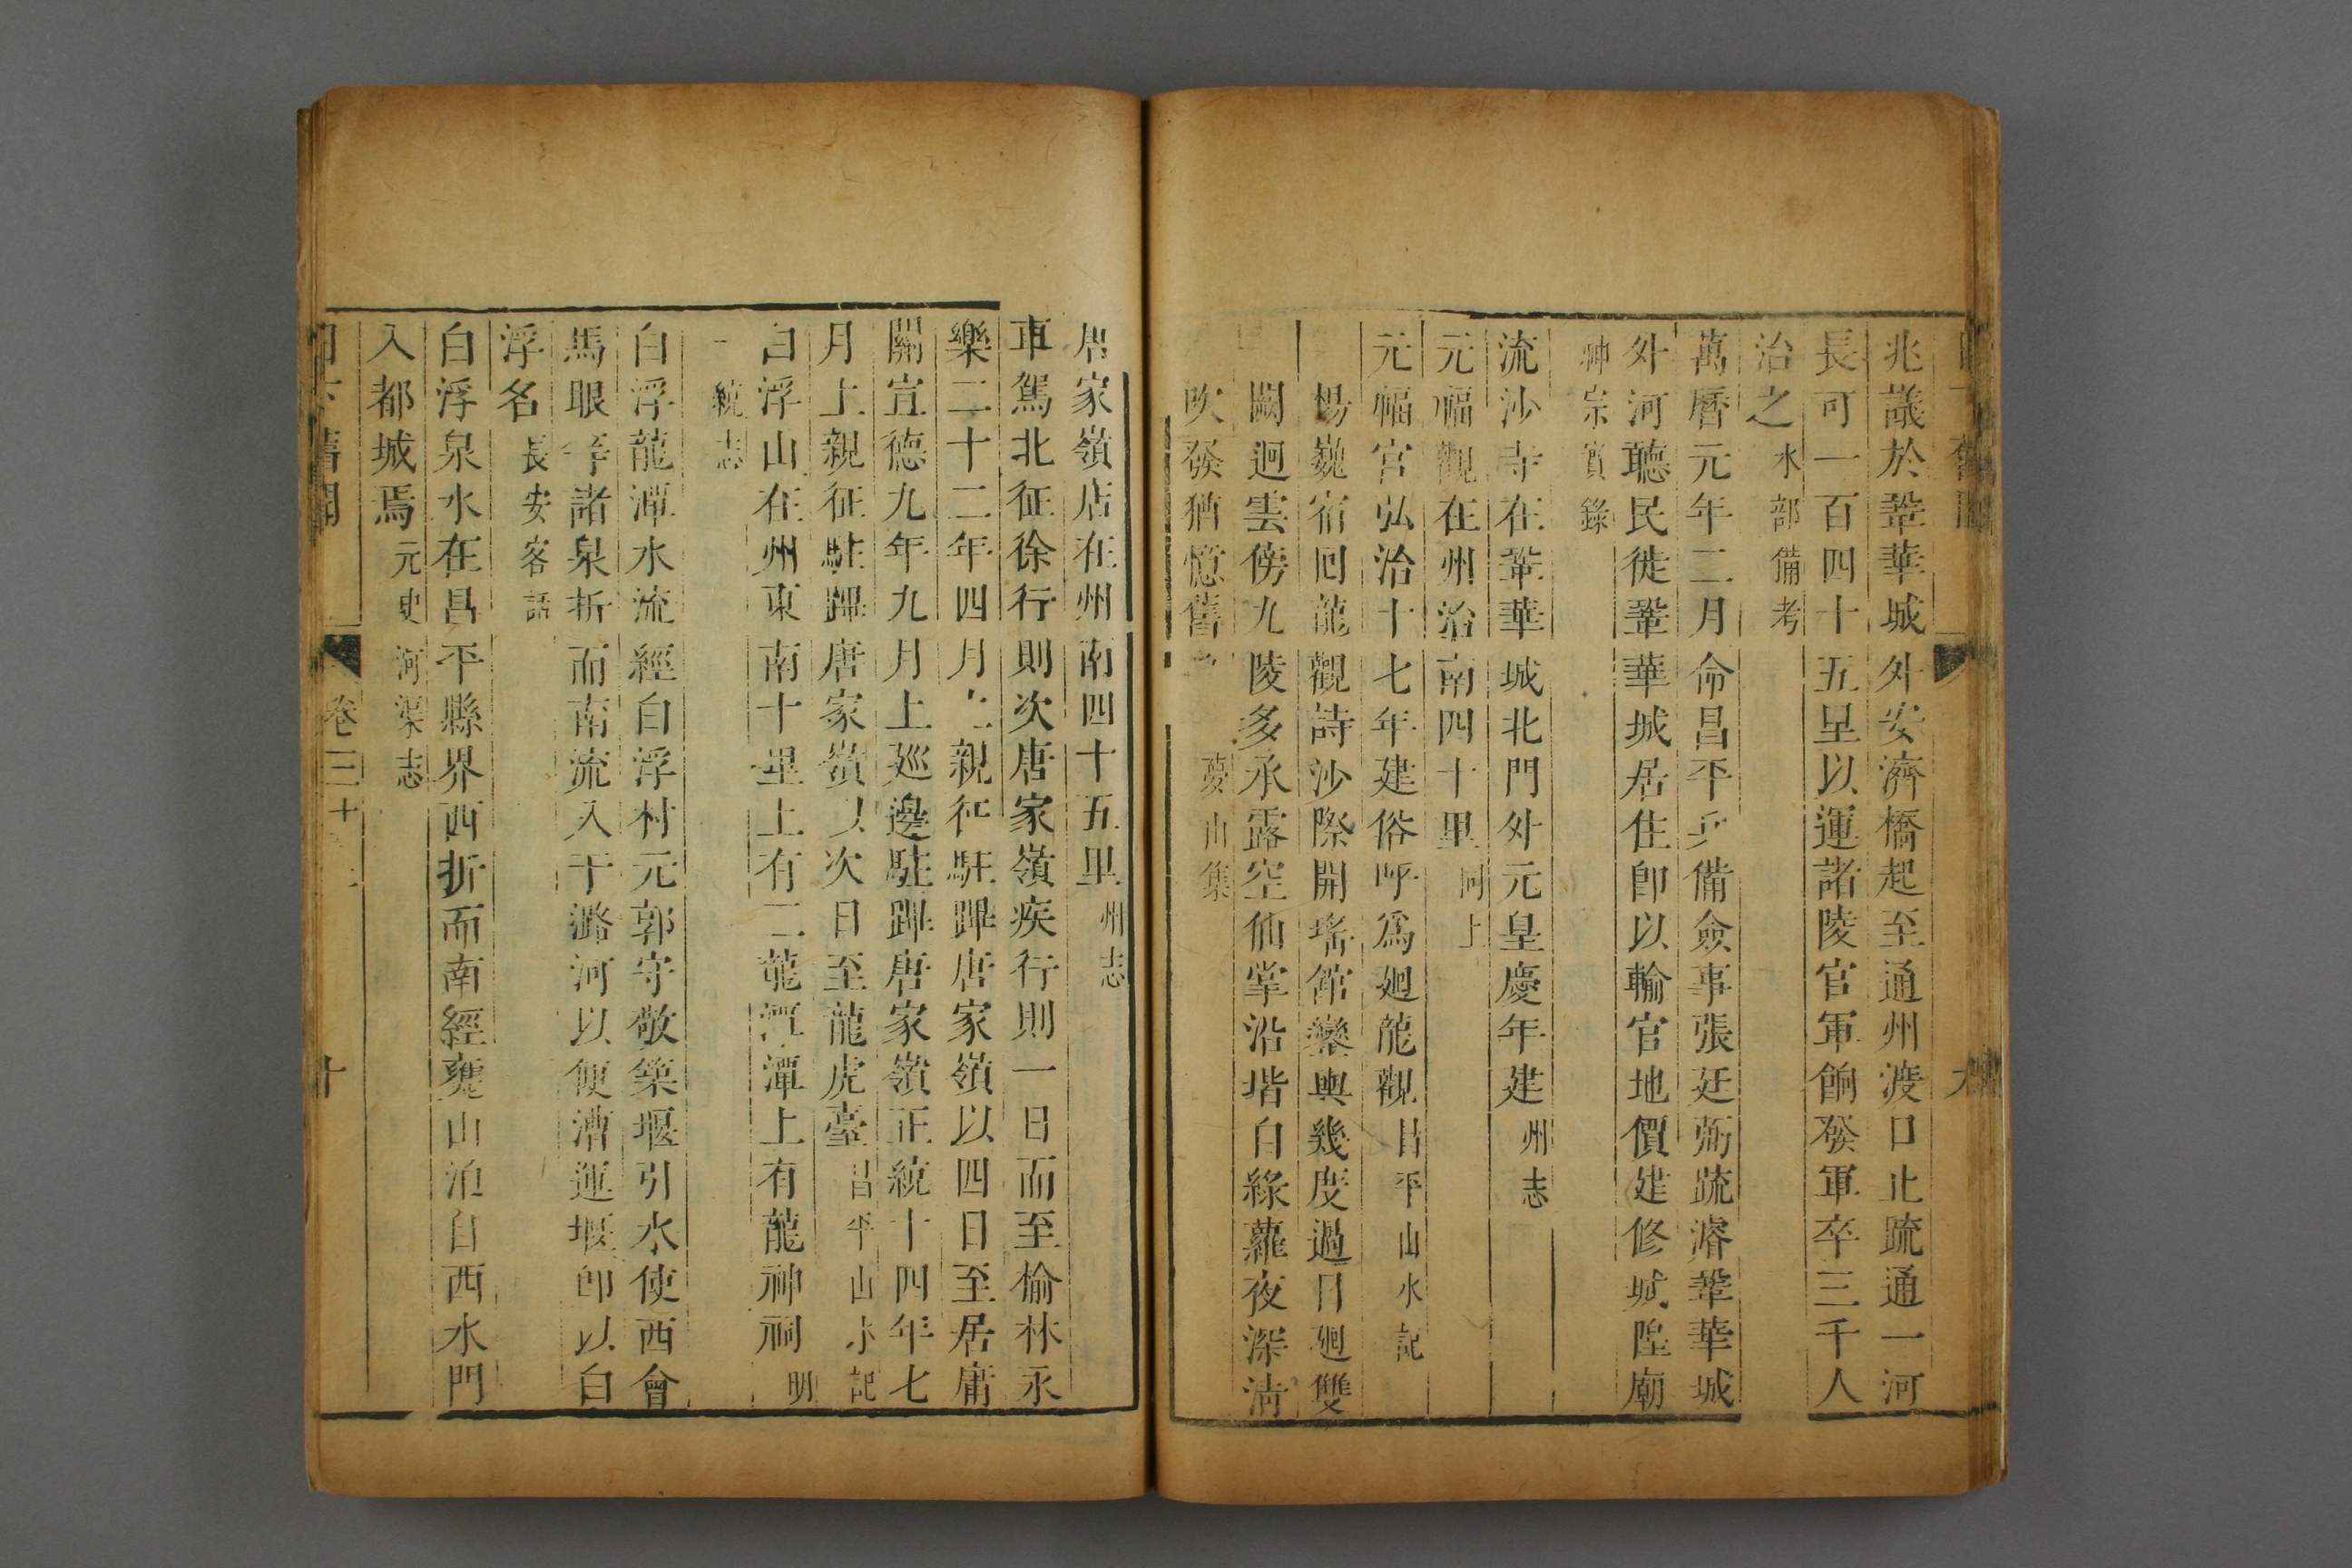 日下舊聞 九
兆議於鞏華城外安濟橋起至通州渡口止疏通一河
長可一百四十五里以運諸陵官軍餉發軍卒三千人
治之水部備考
萬曆元年二月命昌平兵備僉事張廷弼疏濬鞏華城
外河聽民徙鞏華城居住即以輸官地價建修城隍廟
神宗實錄
流沙寺在鞏華城北門外元皇慶年建州志
元福觀在州治南四十里同上
元福宮弘治十七年建俗呼爲廻龍觀昌平山水記
楊巍宿回龍觀詩沙際開瑤館鑾輿幾度過日廻雙
闕迥雲傍九陵多承露空仙掌沿堦自綠蘿夜深淸
吹發猶憶舊 夢山集
唐家嶺店在州南四十五里州志
車駕北征徐行則次唐家嶺疾行則一日而至榆林永
樂二十二年四月上親征駐蹕唐家嶺以四日至居庸
關宣德九年九月上廵邊駐蹕唐家嶺正統十四年七
月上親征駐蹕唐家嶺以次日至龍虎臺昌平山水記
白浮山在州東南十里上有二龍潭潭上有龍神祠明
一統志
白浮龍潭水流經白浮村元郭守敬築堰引水使西會
馬眼等諸泉折而南流入于潞河以便漕運堰卽以白
浮名長安客話
白浮泉水在昌平縣界西折而南經甕山泊自西水門
入都城焉元史河渠志
日下舊聞 卷三十 十